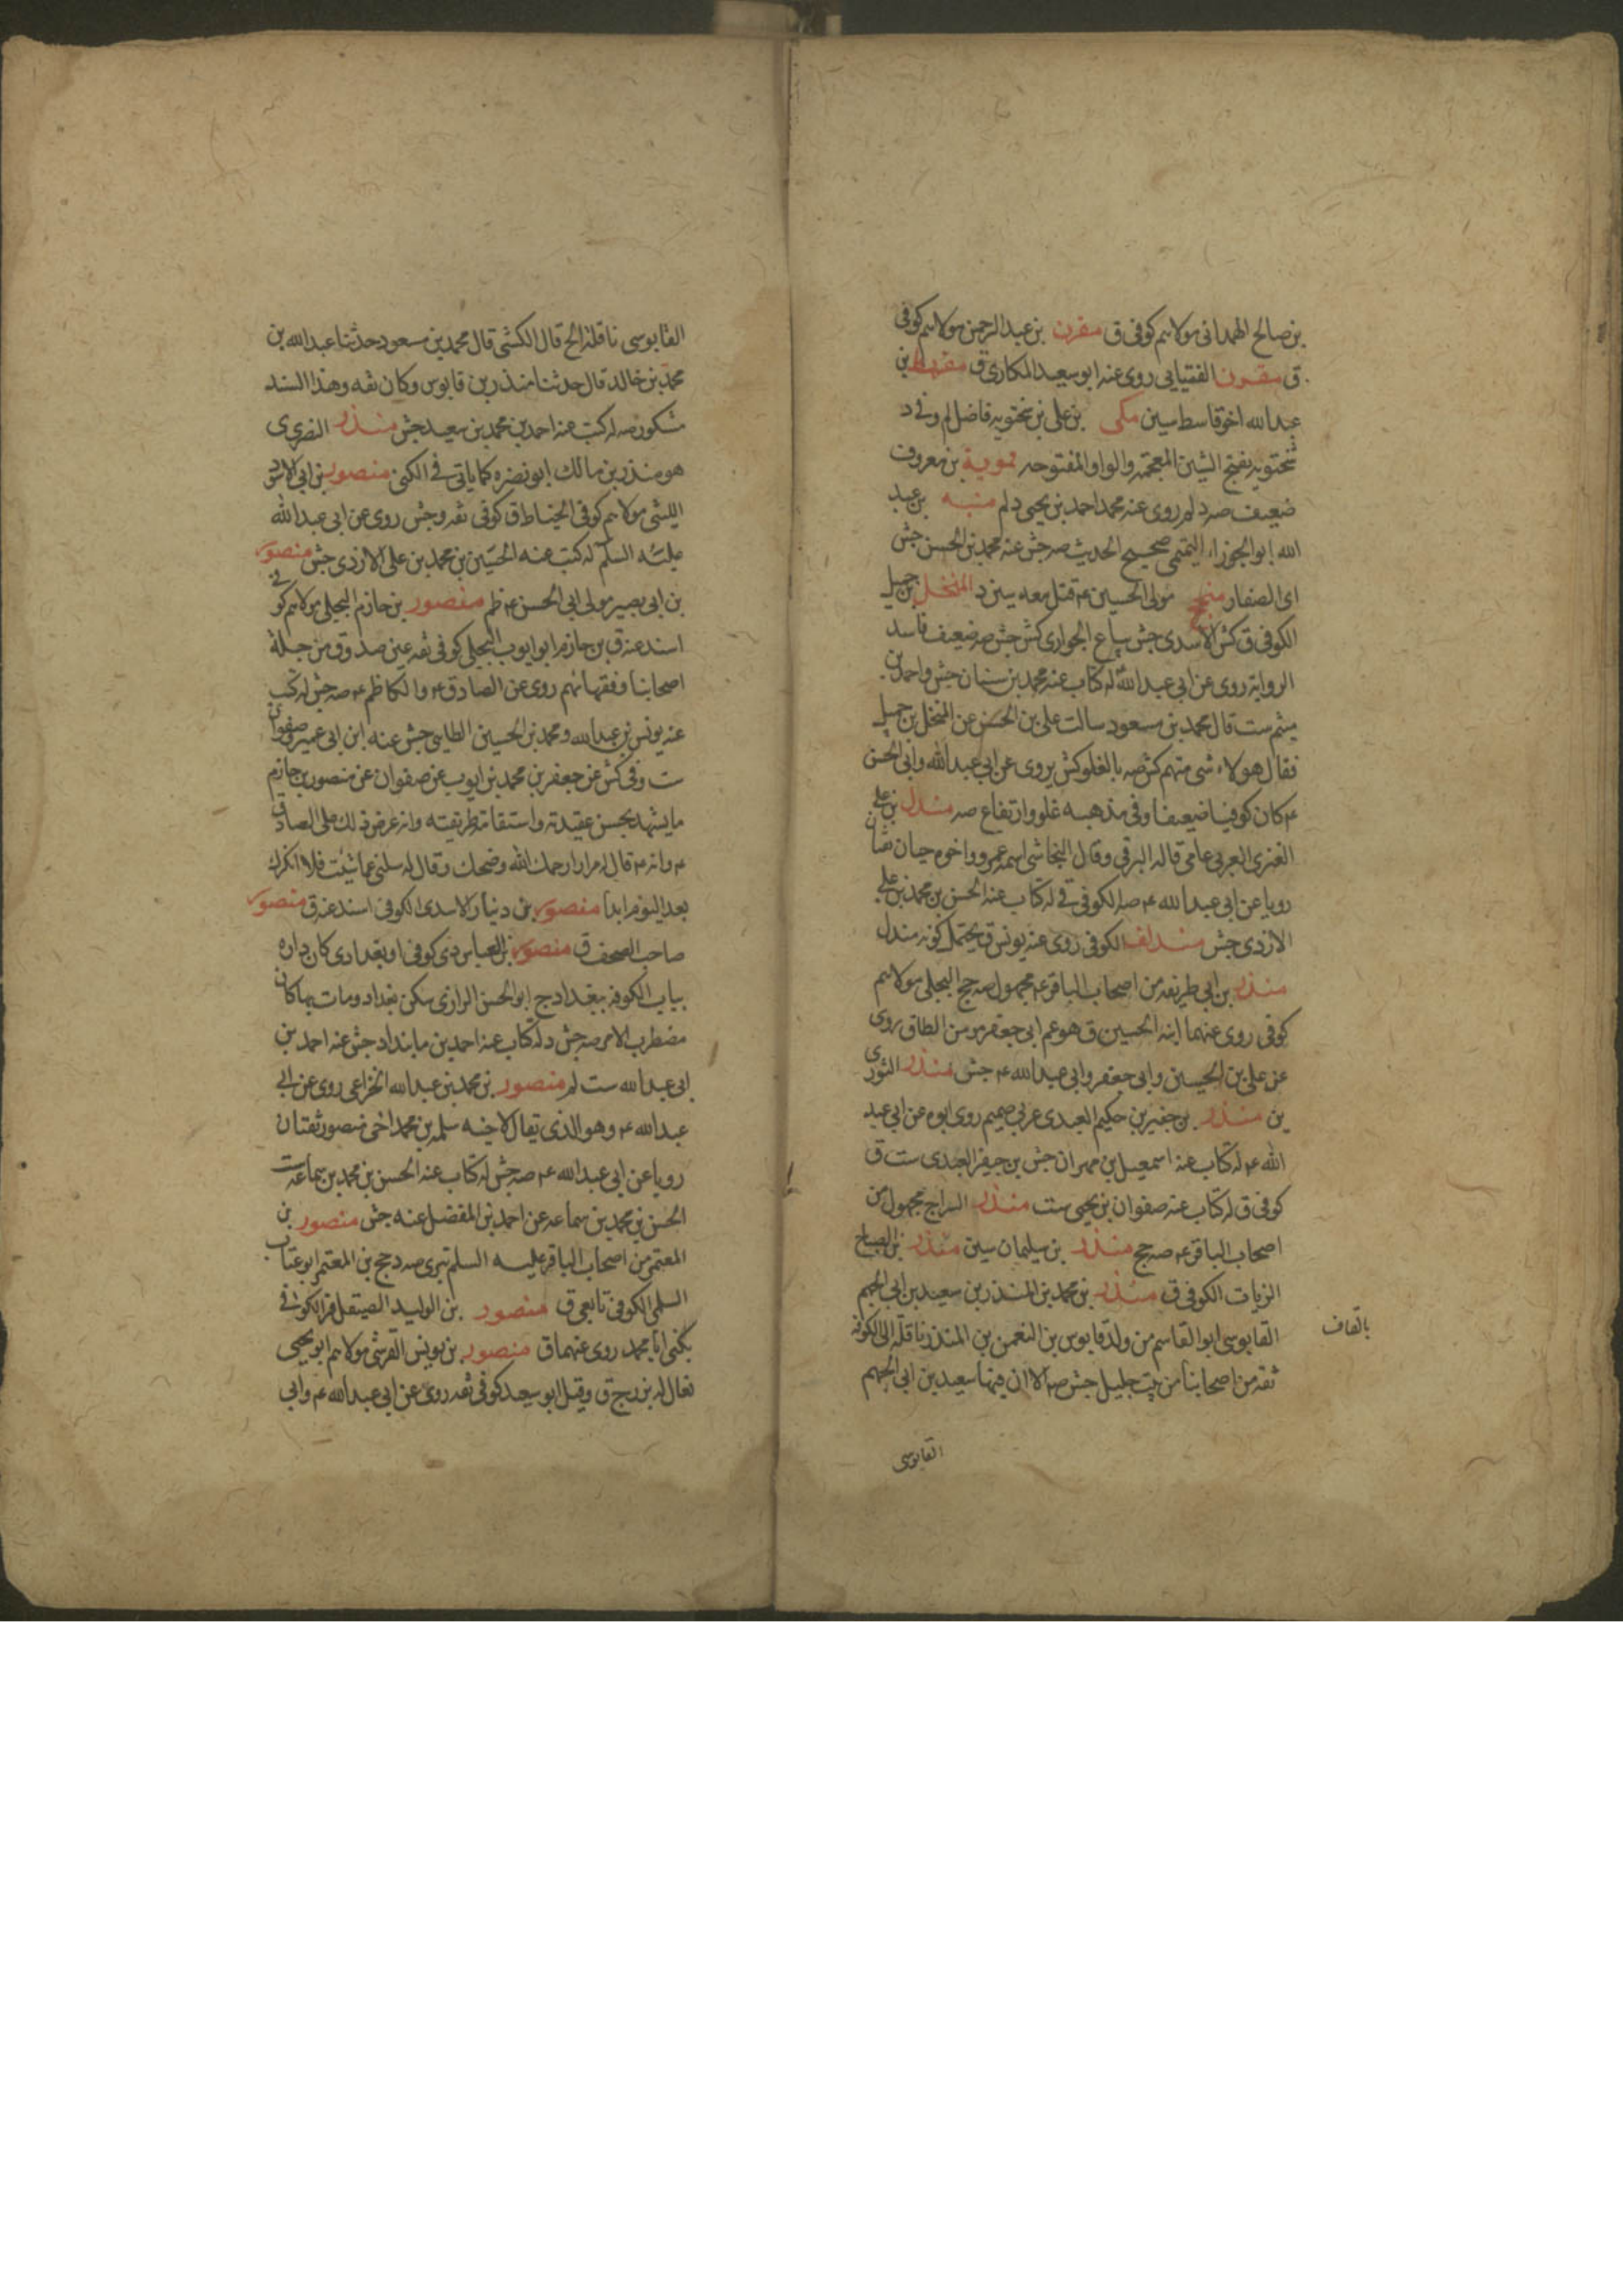 بن صالح الهمدانی مولاهم کوفی ق مقرن بن عبدالرحمن مولاهم کوفی
ق مقرن الفتیانی روی عنه ابو سعید المکاری ق مقسط بن
عبدالله اخو قاسط سین مکی بن علی بن سختویه فاضل لم وفی د
سختویه بفتح الشین المعجمة والواو المفتوحه ممویة بن معروف
ضعیف صه د لم روی عنه محمد احمد بن یحیی د لم منبه بن عبد
الله ابو الجوزاء التمیمی صحیح الحدیث صه جش عنه محمد بن الحسن جش
ای الصفار منجح مولی الحسین ع قتل معه سین د المنخل بن جمیل
الکوفی ق کش الاسدی جش بیاع الجواری کش جش صه ضعیف فاسد
الروایة روی عن ابی عبدالله له کتاب عنه محمد بن سنان جش واحمد بن
میثم ست قال محمد بن مسعود سالت علی بن الحسن عن المنخل بن جمیل
فقال هو لاء شی متهم کش صه بالغلو کش یروی عن ابی عبدالله وابی الحسن
ع کان کوفیا ضعیفا وفی مذهبه غلو وارتفاع صه مندل بن علی
العنزی العربی عامی قاله البرقی وقال النجاشی اسمه عمرو واخوه حیان ثقتان
رویا عن ابی عبدالله ع صه الکوفی ق له کتاب عنه الحسن بن محمد بن علی
الازدی جش مندلف الکوفی روی عنه یونس ق یحتمل کونه مندل
منذر بن ابی طریفه من اصحاب الباقر ع مجهول صه جج البجلی مولاهم
کوفی روی عنهما ابنه الحسین ق هو عم ابی جعفر مومن الطاق روی
عن علی بن الحسین وابی جعفر وابی عبدالله ع جش منذر الثوری
ین منذر بن جفیر بن حکیم العبدی عربی صمیم روی ابوه عن ابی عبد
الله ع له کتاب عنه اسمعیل بن مهران جش بن جیفر العبدی ست ق
کوفی ق له کتاب عنه صفوان بن یحیی ست منذر السراج مجهول من
اصحاب الباقر ع صه جج منذر بن سلیمان سین منذر بن الصباح
الزیات الکوفی ق منذر بن محمد بن المنذر بن سعید بن ابی الجهم
القابوسی ابو القاسم من ولد قابوس بن النعمن بن المنذر ناقلة الی الکوفه
بالقاف
ثقه من اصحابنا من بیت جلیل جش صه الا ان فیها سعید بن ابی الجهم
القابوسی
القابوسی ناقلة الخ قال الکشی قال محمد بن مسعود حدثنا عبدالله بن
محمد بن خالد قال حدثنا منذر بن قابوس وکان ثقه وهذا السند
مشکور صه له کتب عنه احمد بن محمد بن سعید جش منذر النضری
هو منذر بن مالک ابو نضره کما یاتی فی الکنی منصور بن ابی الاسود
اللیثی مولاهم کوفی الخیاط ق کوفی ثقه وجش روی عن ابی عبدالله
علیه السلم له کتب عنه الحسین بن محمد بن علی الازدی جش منصور
بن ابی بصیر مولی ابی الحسن ع ظم منصور بن حازم البجلی مولاهم کوفی
اسند عنه ق بن حازم ابو ایوب البجلی کوفی ثقه عین صدوق من جملة
اصحابنا وفقهائهم روی عن الصادق ع والکاظم ع صه جش له کتب
عنه یونس بن عبدالله ومحمد بن الحسین الطایی جش عنه ابن ابی عمیر وصفوان
ست وفی کش عن جعفر بن محمد بن ایوب عن صفوان عن منصور بن حازم
ما یشهد بحسن عقیدته واستقامة طریقته وانه عرض ذلک علی الصادق
ع وانه ع قال له مرارا رحمک الله وضحک وقال له سلنی عما شئت فلا انکرک
بعد الیوم ابدا منصور بن دینار الاسدی الکوفی اسند عنه ق منصور
صاحب الصحف ق منصور بن العباس دی کوفی او بغدادی کان داره
بباب الکوفه ببغداد ج ابو الحسن الرازی سکن بغداد ومات بها کان
مضطرب الامر صه جش د له کتاب عنه احمد بن مابنداد جش عنه احمد بن
ابی عبدالله ست لم منصور بن محمد بن عبدالله الخزاعی روی عن ابی
عبدالله ع وهو الذی یقال لاخیه سلمه بن محمد اخی منصور ثقتان
رویا عن ابی عبدالله ع صه جش له کتاب عنه الحسن بن محمد بن سماعه ست
الحسن بن محمد بن سماعه عن احمد بن المفضل عنه جش منصور بن
المعتمر من اصحاب الباقر علیه السلم تبری صه د جج بن المعتمر ابو عتاب
السلمی الکوفی تابعی ق منصور بن الولید الصیقل قر الکوفی
یکنی ابا محمد روی عنهما ق منصور بن یونس القرشی مولاهم ابو یحیی
یقال له بزرج ق وقیل ابو سعید کوفی ثقه روی عن ابی عبدالله ع وابی